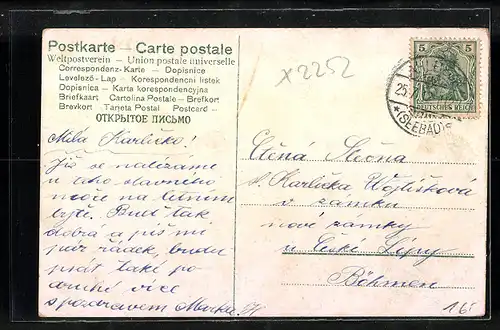 Postkarte – Carte postale
Weltpostverein – Union postale universelle
Correspondenz-Karte – Dopisnice
Levelező-Lap – Korespondencni listek
Dopisnica – Karta korespondencyjna
Briefkaart – Cartolina Postale – Brefkort
Brevkort – Tarjeta Postal – Postcard –
ОТКРЫТОЕ ПИСЬМО
x2252
5 5
DEUTSCHES REICH
25.7
*(SEEBAD)*
Milá Karličko!
Již se nalézáme
u toho slavného
moře na letním
bytě. Buď tak
dobrá a piš mi
pár řádek, budu
psát také po
druhé více
s pozdravem Marka W
Ctěná Slečna
sl. Karlička Wojtíšková
v zámku
nové zámky
u České Lípy
Böhmen
16